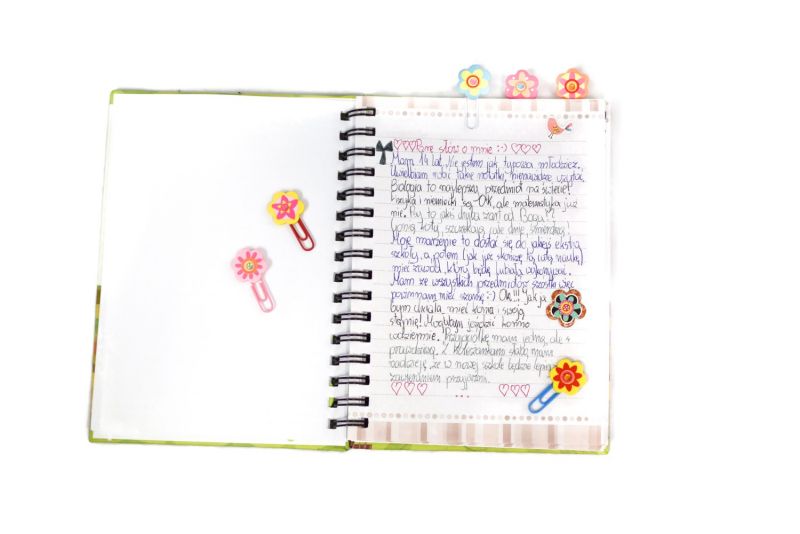 ♡♡♡Parę słów o mnie :-) ♡♡♡
Mam 14 lat. Nie jestem jak typowa młodzież.
Uwielbiam robić takie notatki, nienawidzę czytać.
Biologia to najlepszy przedmiot na świecie!
Fizyka i niemiecki są OK, ale matematyka już
nie. Psy to jakiś chyba żart od Boga!?
Gonią koty, szczekają całe dnie, śmierdzą!
Moje marzenie to dostać się do jakiejś ekstra
szkoły, a potem (jak już skończę tą całą naukę)
mieć zawód, który będę lubiała wykonywać.
Mam ze wszystkich przedmiotów szóstki więc
powinnam mieć szansę :-) Ok!!! Jak ja
bym chciała mieć konia i swoją
stajnię! Mogłabym jeździć konno
codziennie. Przyjaciółkę mam jedną, ale
prawdziwą. Z koleżankami słabo, mam
nadzieję, że w nowej szkole będzie lepiej z
zawieraniem przyjaźni.
♡♡♡ ... ♡♡♡